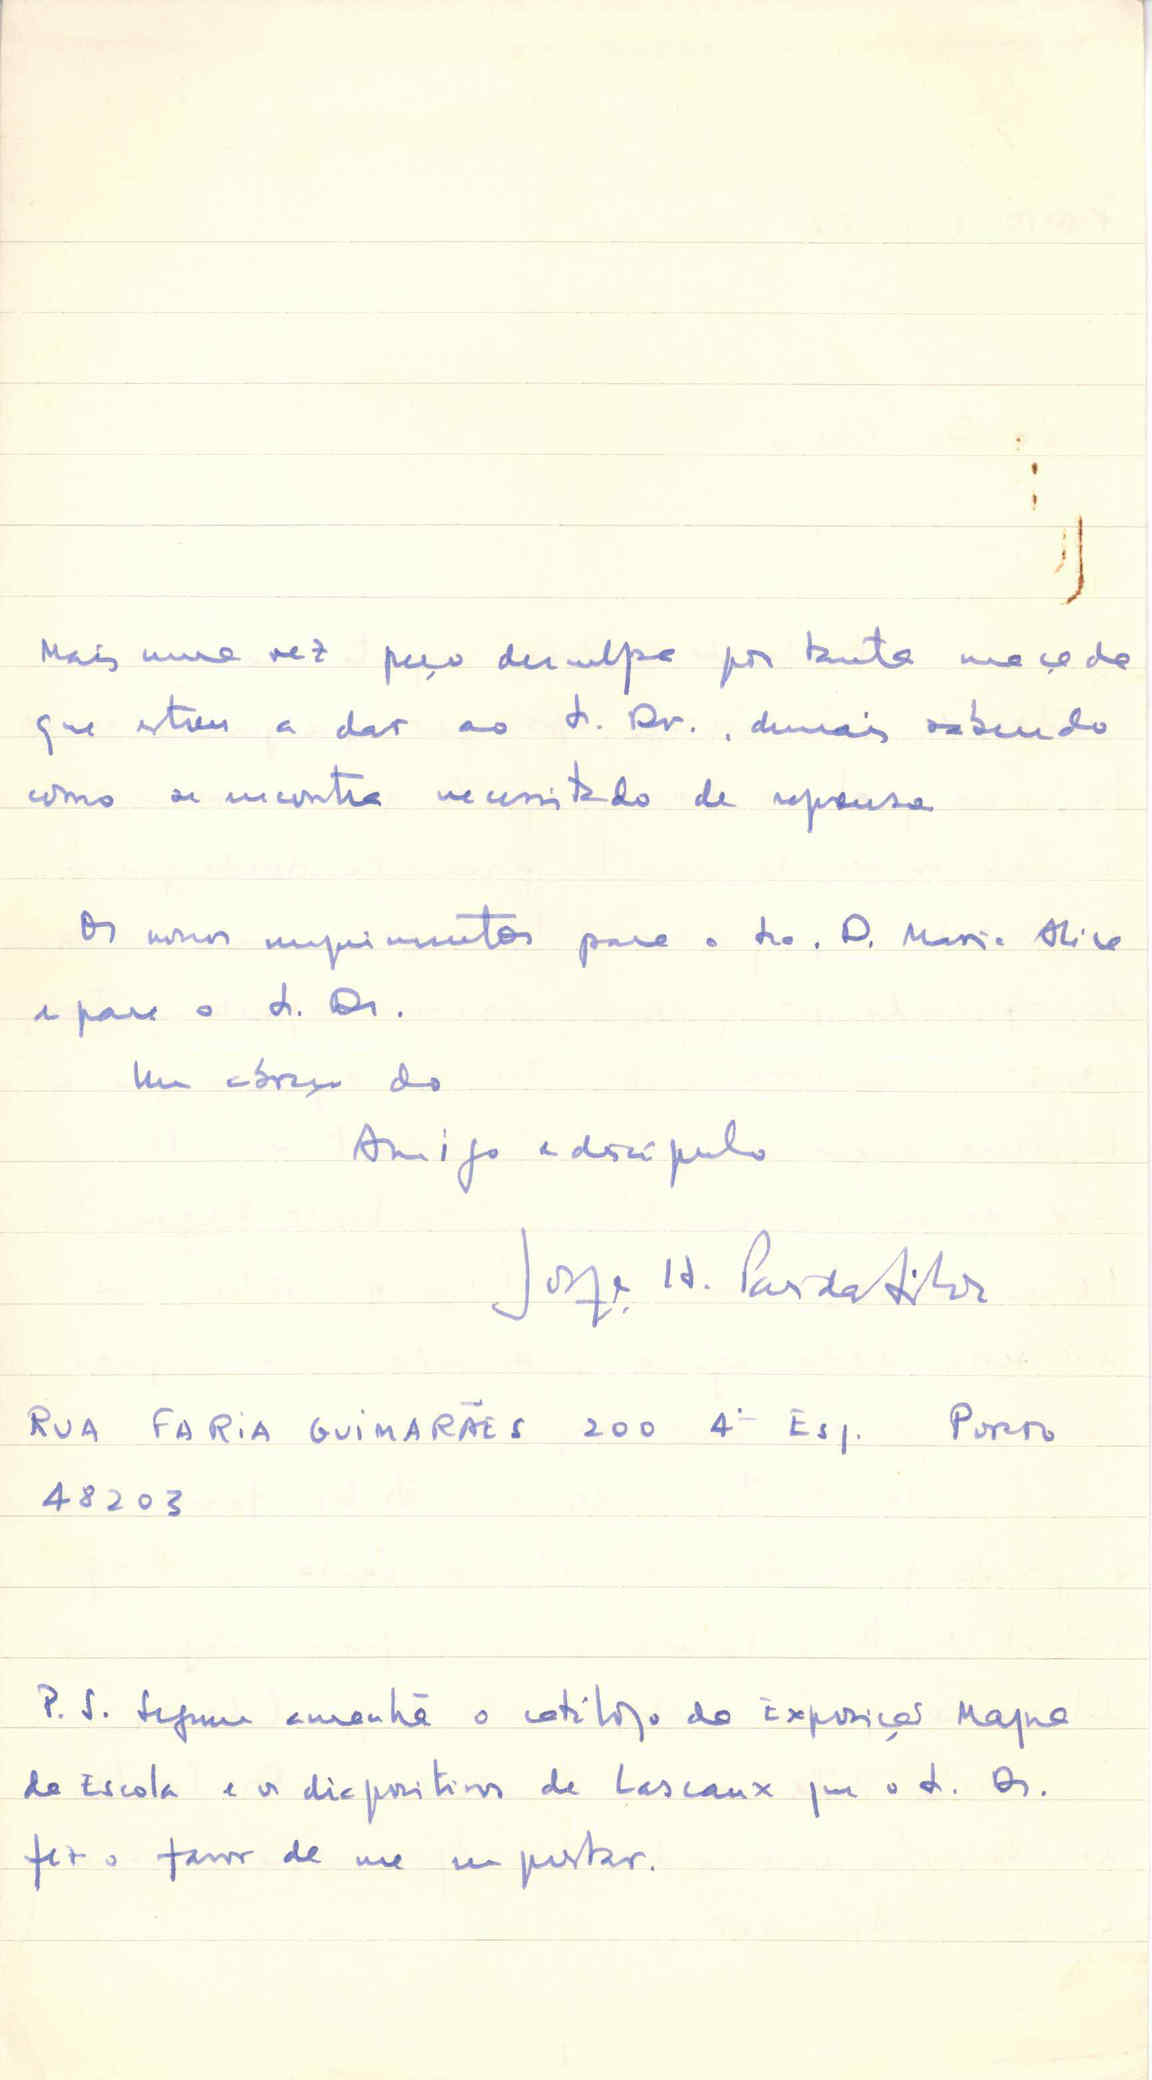 Mais uma vez peço desculpa por tanta maçada
que estou a dar ao Sr. Dr., demais sabendo
como se encontra necessitado de repouso
Os nossos cumprimentos para a Sra. D. Maria Alice
e para o Sr. Dr.
Um abraço do
Amigo e discípulo
Jorge H. Pais da Silva
RUA FARIA GUIMARÃES 200 4º Esq. Porto
48203
P. S. Segue amanhã o catálogo da Exposição Magna
da Escola e os diapositivos de Lascaux que o Sr. Dr.
fez o favor de me emprestar.